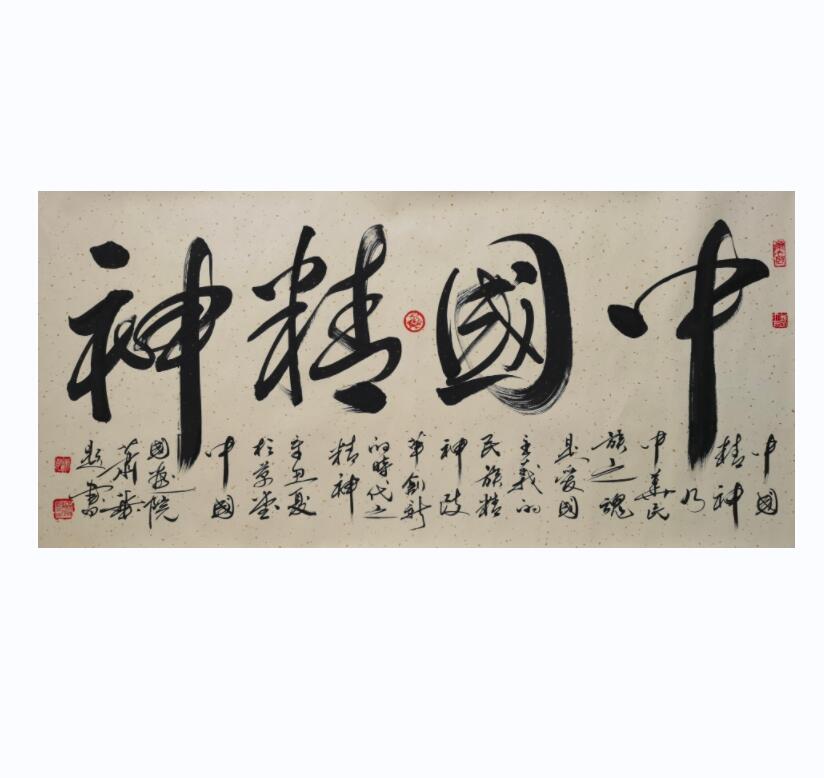 中國精神
中國
精神
乃
中華民
族之魂
是愛國
主義的
民族精
神改
革創新
的時代之
精神
辛丑夏
於京
中國
國畫院
蕭華
題書